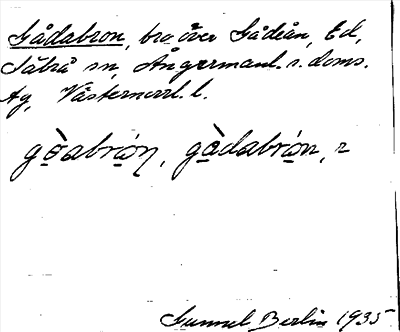 Gådabron, bro över Gådeån, Ed,
Säbrå sn, Ångermanl. s. doms.
tg, Västernorrl. l.
gò̤abrọ́n, gàdabrọ́n, r
Gunnel Berlin 1935